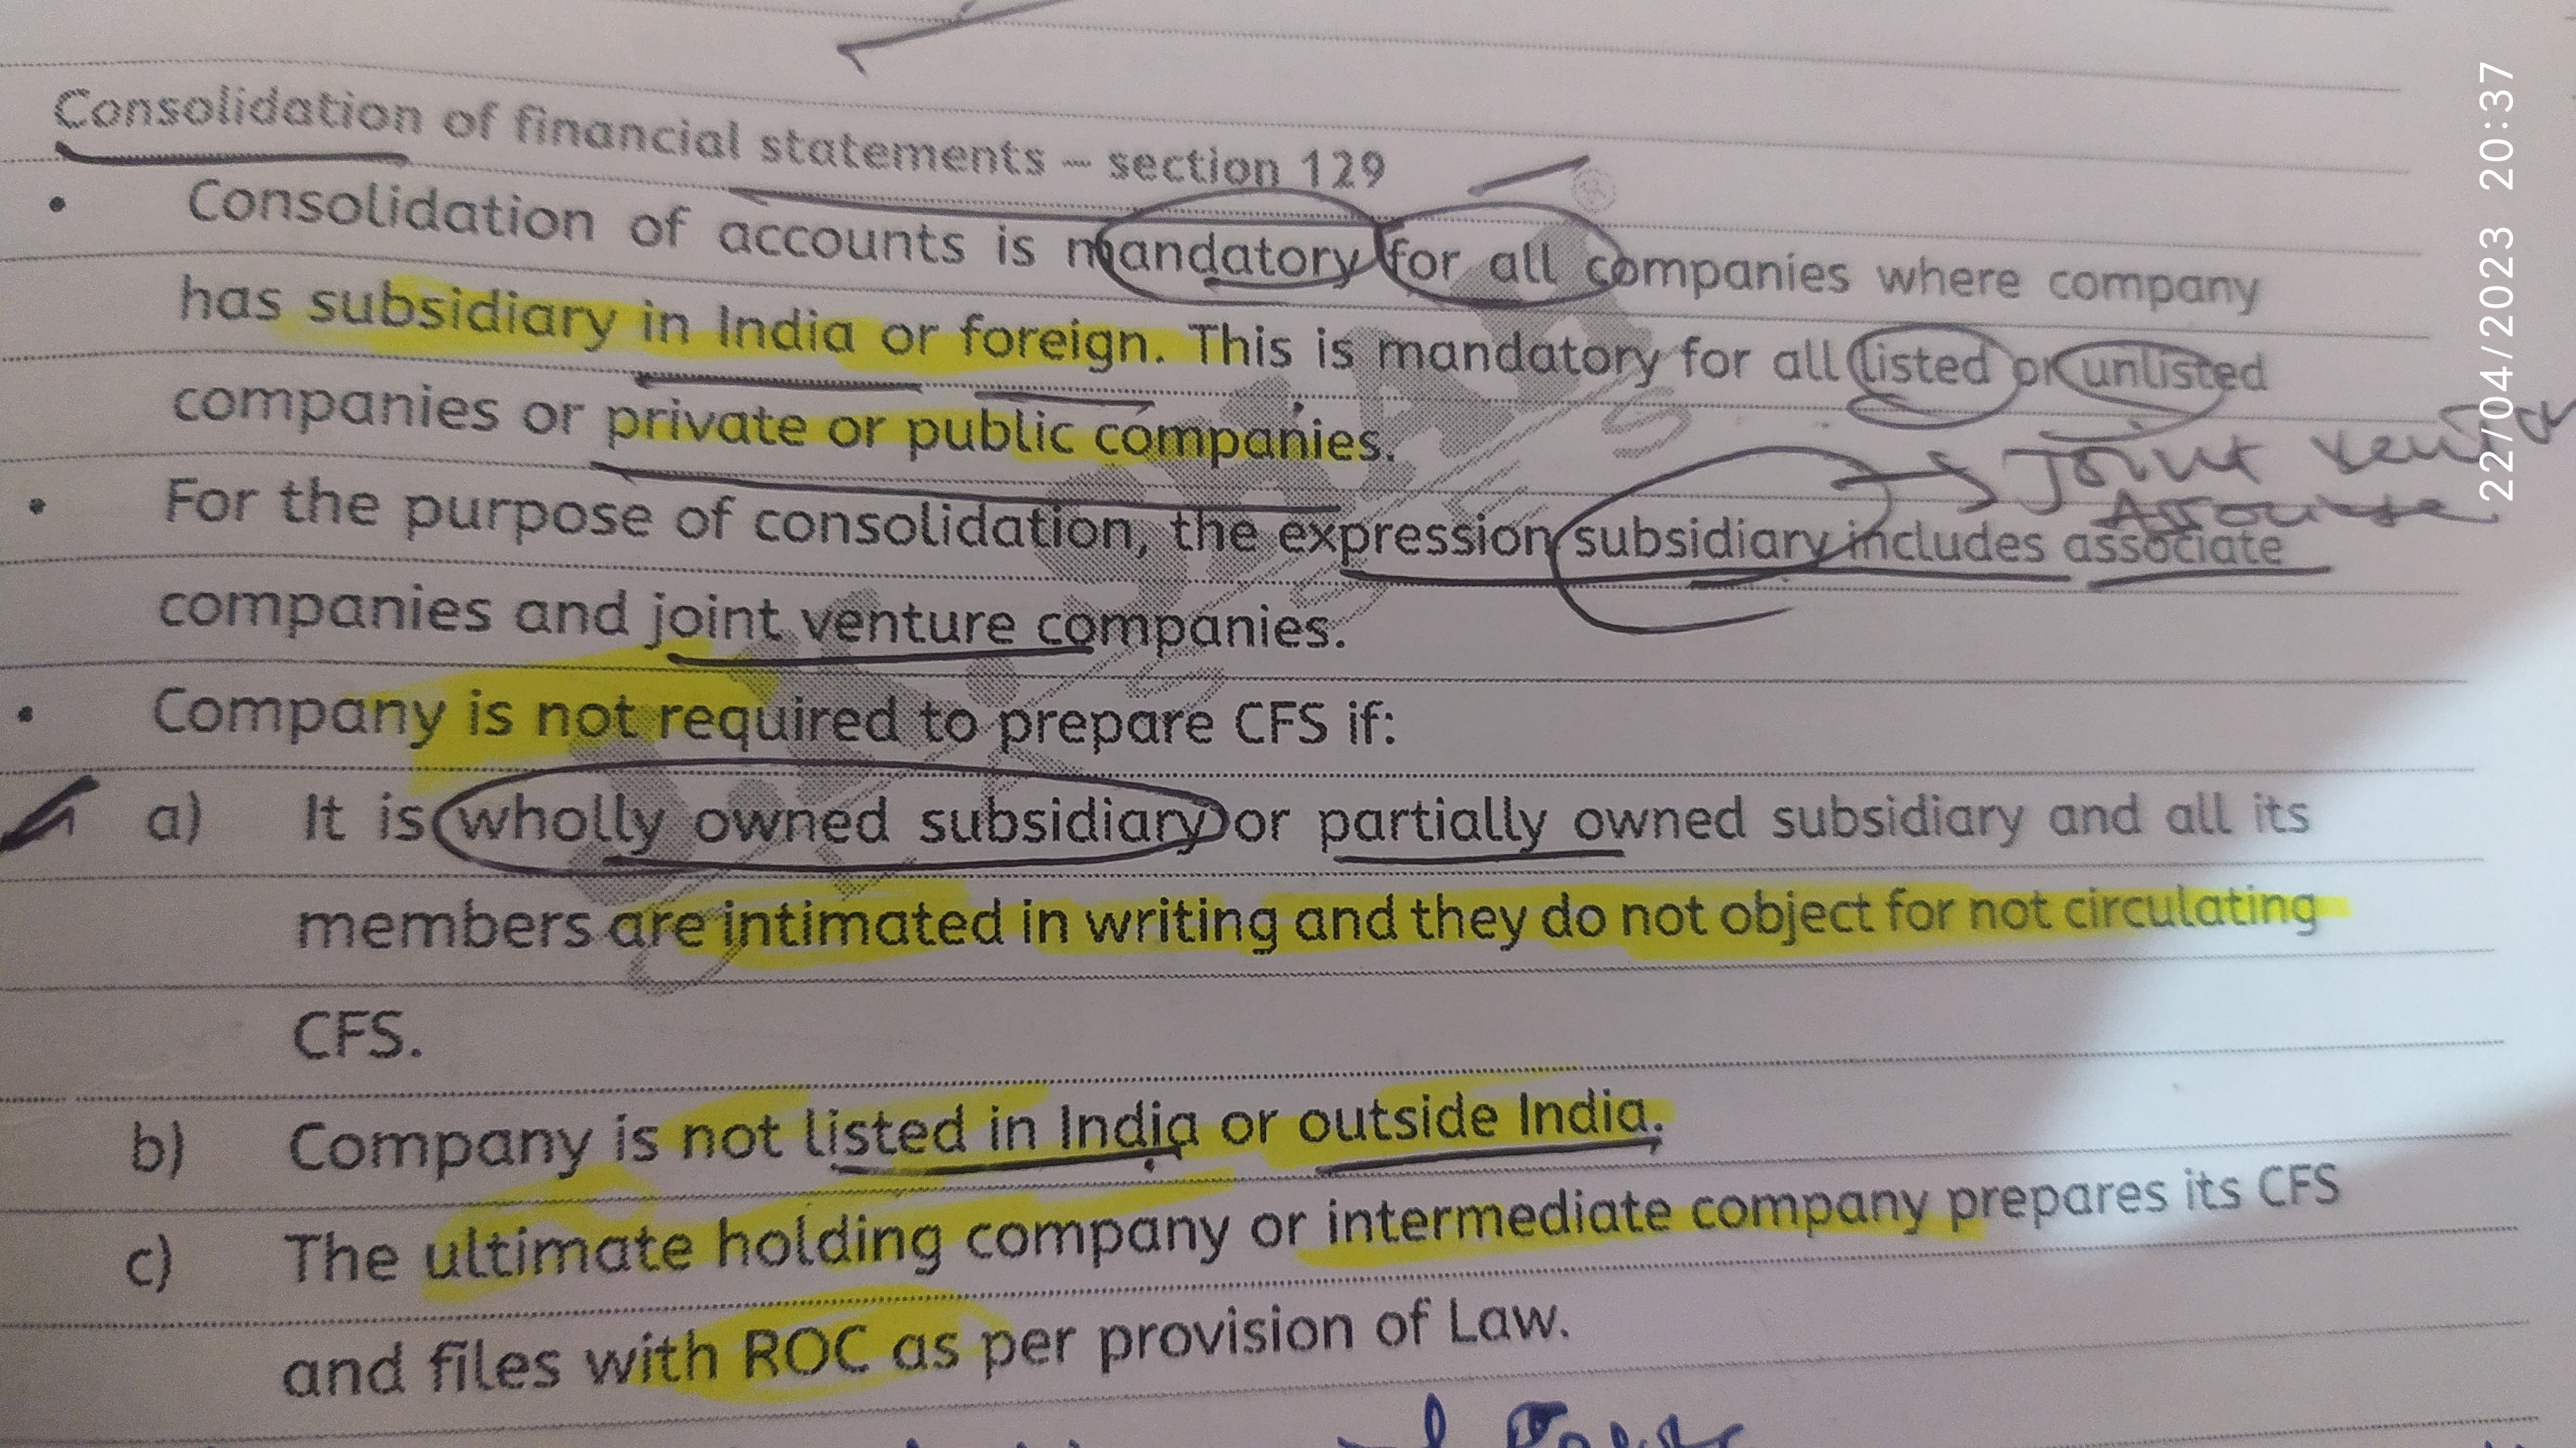 Consolidation of financial statements – section 129
• Consolidation of accounts is mandatory for all companies where company
has subsidiary in India or foreign. This is mandatory for all listed or unlisted
companies or private or public companies.
→ Joint
Associate
• For the purpose of consolidation, the expression subsidiary includes associate
companies and joint venture companies.
• Company is not required to prepare CFS if:
a) It is wholly owned subsidiary or partially owned subsidiary and all its
members are intimated in writing and they do not object for not circulating
CFS.
b) Company is not listed in India or outside India.
c) The ultimate holding company or intermediate company prepares its CFS
and files with ROC as per provision of Law.
22/04/2023 20:37